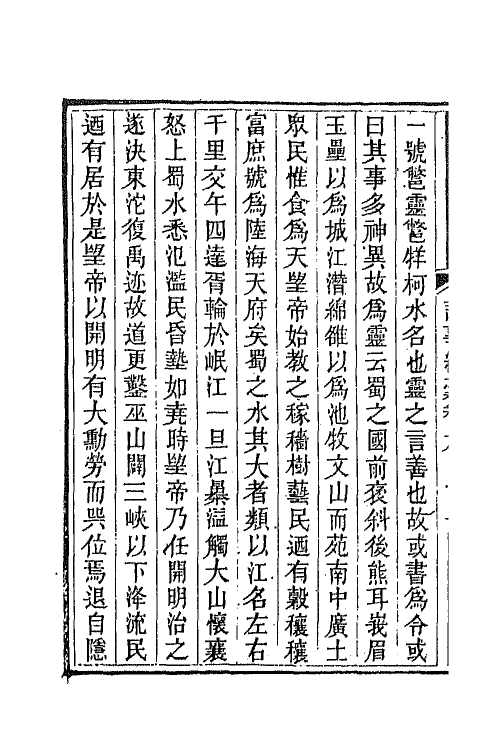 一號鼈靈鼈牂柯水名也靈之言善也故或書爲令或
曰其事多神異故爲靈云蜀之國前褒斜後熊耳峩眉
玉壘以爲城江潛綿雒以爲池牧文山而苑南中廣土
眾民惟食爲天朢帝始教之稼穡樹藝民迺有穀穰穰
富庶號爲陸海天府矣蜀之水其大者類以江名左右
千里交午四達胥輪於岷江一旦江㬥溢觸大山懷襄
怒上蜀水悉氾濫民昏墊如堯時朢帝乃任開明治之
遂決東沱復禹迹故道更鑿巫山闢三峽以下洚流民
迺有居於是朢帝以開明有大勳勞而巽位焉退自隱